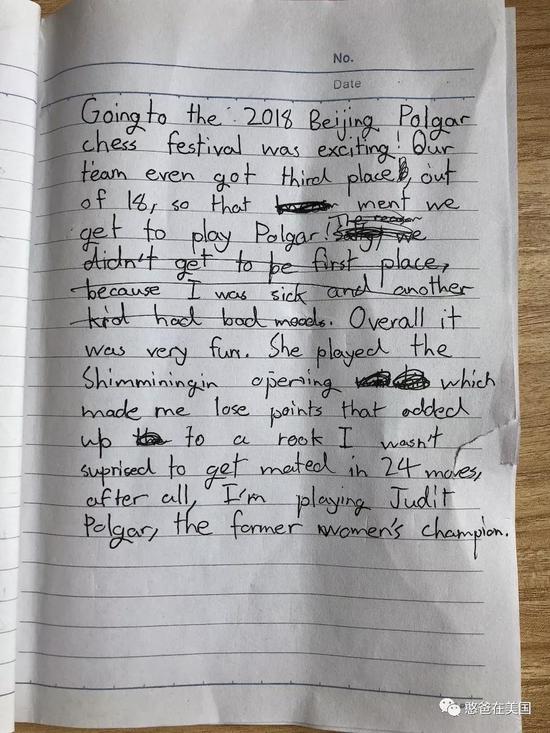 No.
Date
Going to the 2018 Beijing Polgar
chess festival was exciting! Our
team even got third place, out
of 18, so that ment we
The reason
get to play Polgar! we
didn't get to be first place,
because I was sick and another
kid had bad moods. Overall it
was very fun. She played the
Shimminingin opening which
made me lose points that added
up to a rook I wasn't
suprised to get mated in 24 moves,
after all, I'm playing Judit
Polgar, the former women's champion.
憨爸在美国